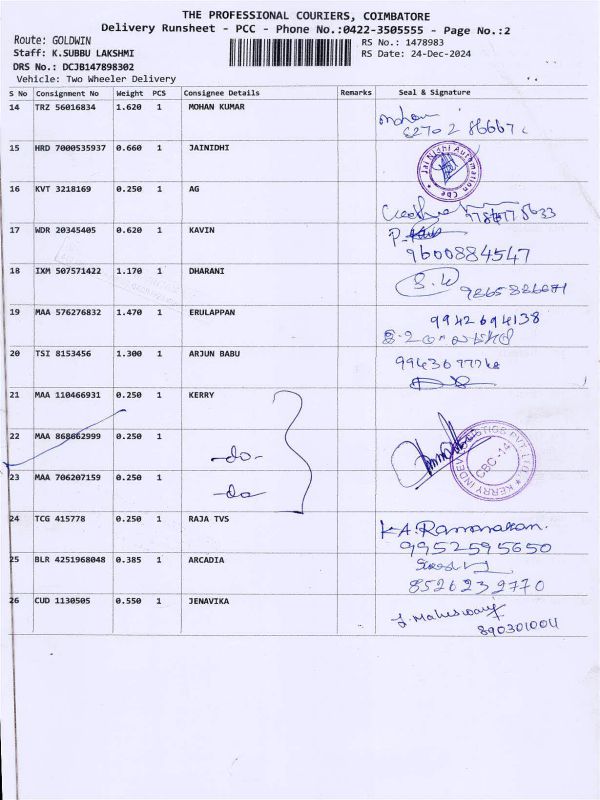 THE PROFESSIONAL COURIERS, COIMBATORE
Delivery Runsheet - PCC - Phone No.:0422-3505555 - Page No.:2
Route: GOLDWIN RS No.: 1478983
Staff: K.SUBBU LAKSHMI RS Date: 24-Dec-2024
DRS No.: DCJB147898302
Vehicle: Two Wheeler Delivery
S No Consignment No Weight PCS Consignee Details Remarks Seal & Signature
14 TRZ 56016834 1.620 1 MOHAN KUMAR
Mohan
15 HRD 7000535937 0.660 1 JAINIDHI
Jai Nidhi Automation Cbe
16 KVT 3218169 0.250 1 AG
17 WDR 20345405 0.620 1 KAVIN
9600884547
18 IXM 507571422 1.170 1 DHARANI
19 MAA 576276832 1.470 1 ERULAPPAN
9942694138
20 TSI 8153456 1.300 1 ARJUN BABU
21 MAA 110466931 0.250 1 KERRY
22 MAA 868662999 0.250 1
-do-
KERRY INDEV LOGISTICS PVT LTD. CBC-14
23 MAA 706207159 0.250 1
-do
24 TCG 415778 0.250 1 RAJA TVS
K.A. Ramanathan.
9952595650
25 BLR 4251968048 0.385 1 ARCADIA
8526232770
26 CUD 1130505 0.550 1 JENAVIKA
J. Maheswari